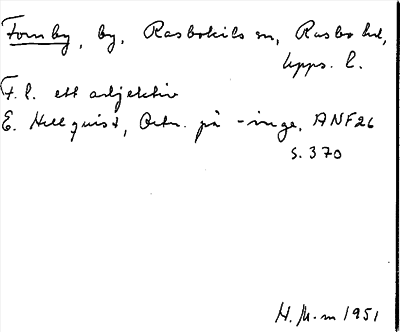 Fornby, by, Rasbokils sn, Rasbo hd,
Upps. l.
F. l. ett adjektiv
E. Hellquist, Ortn. på -inge, ANF 26
s. 370
H. M-m 1951